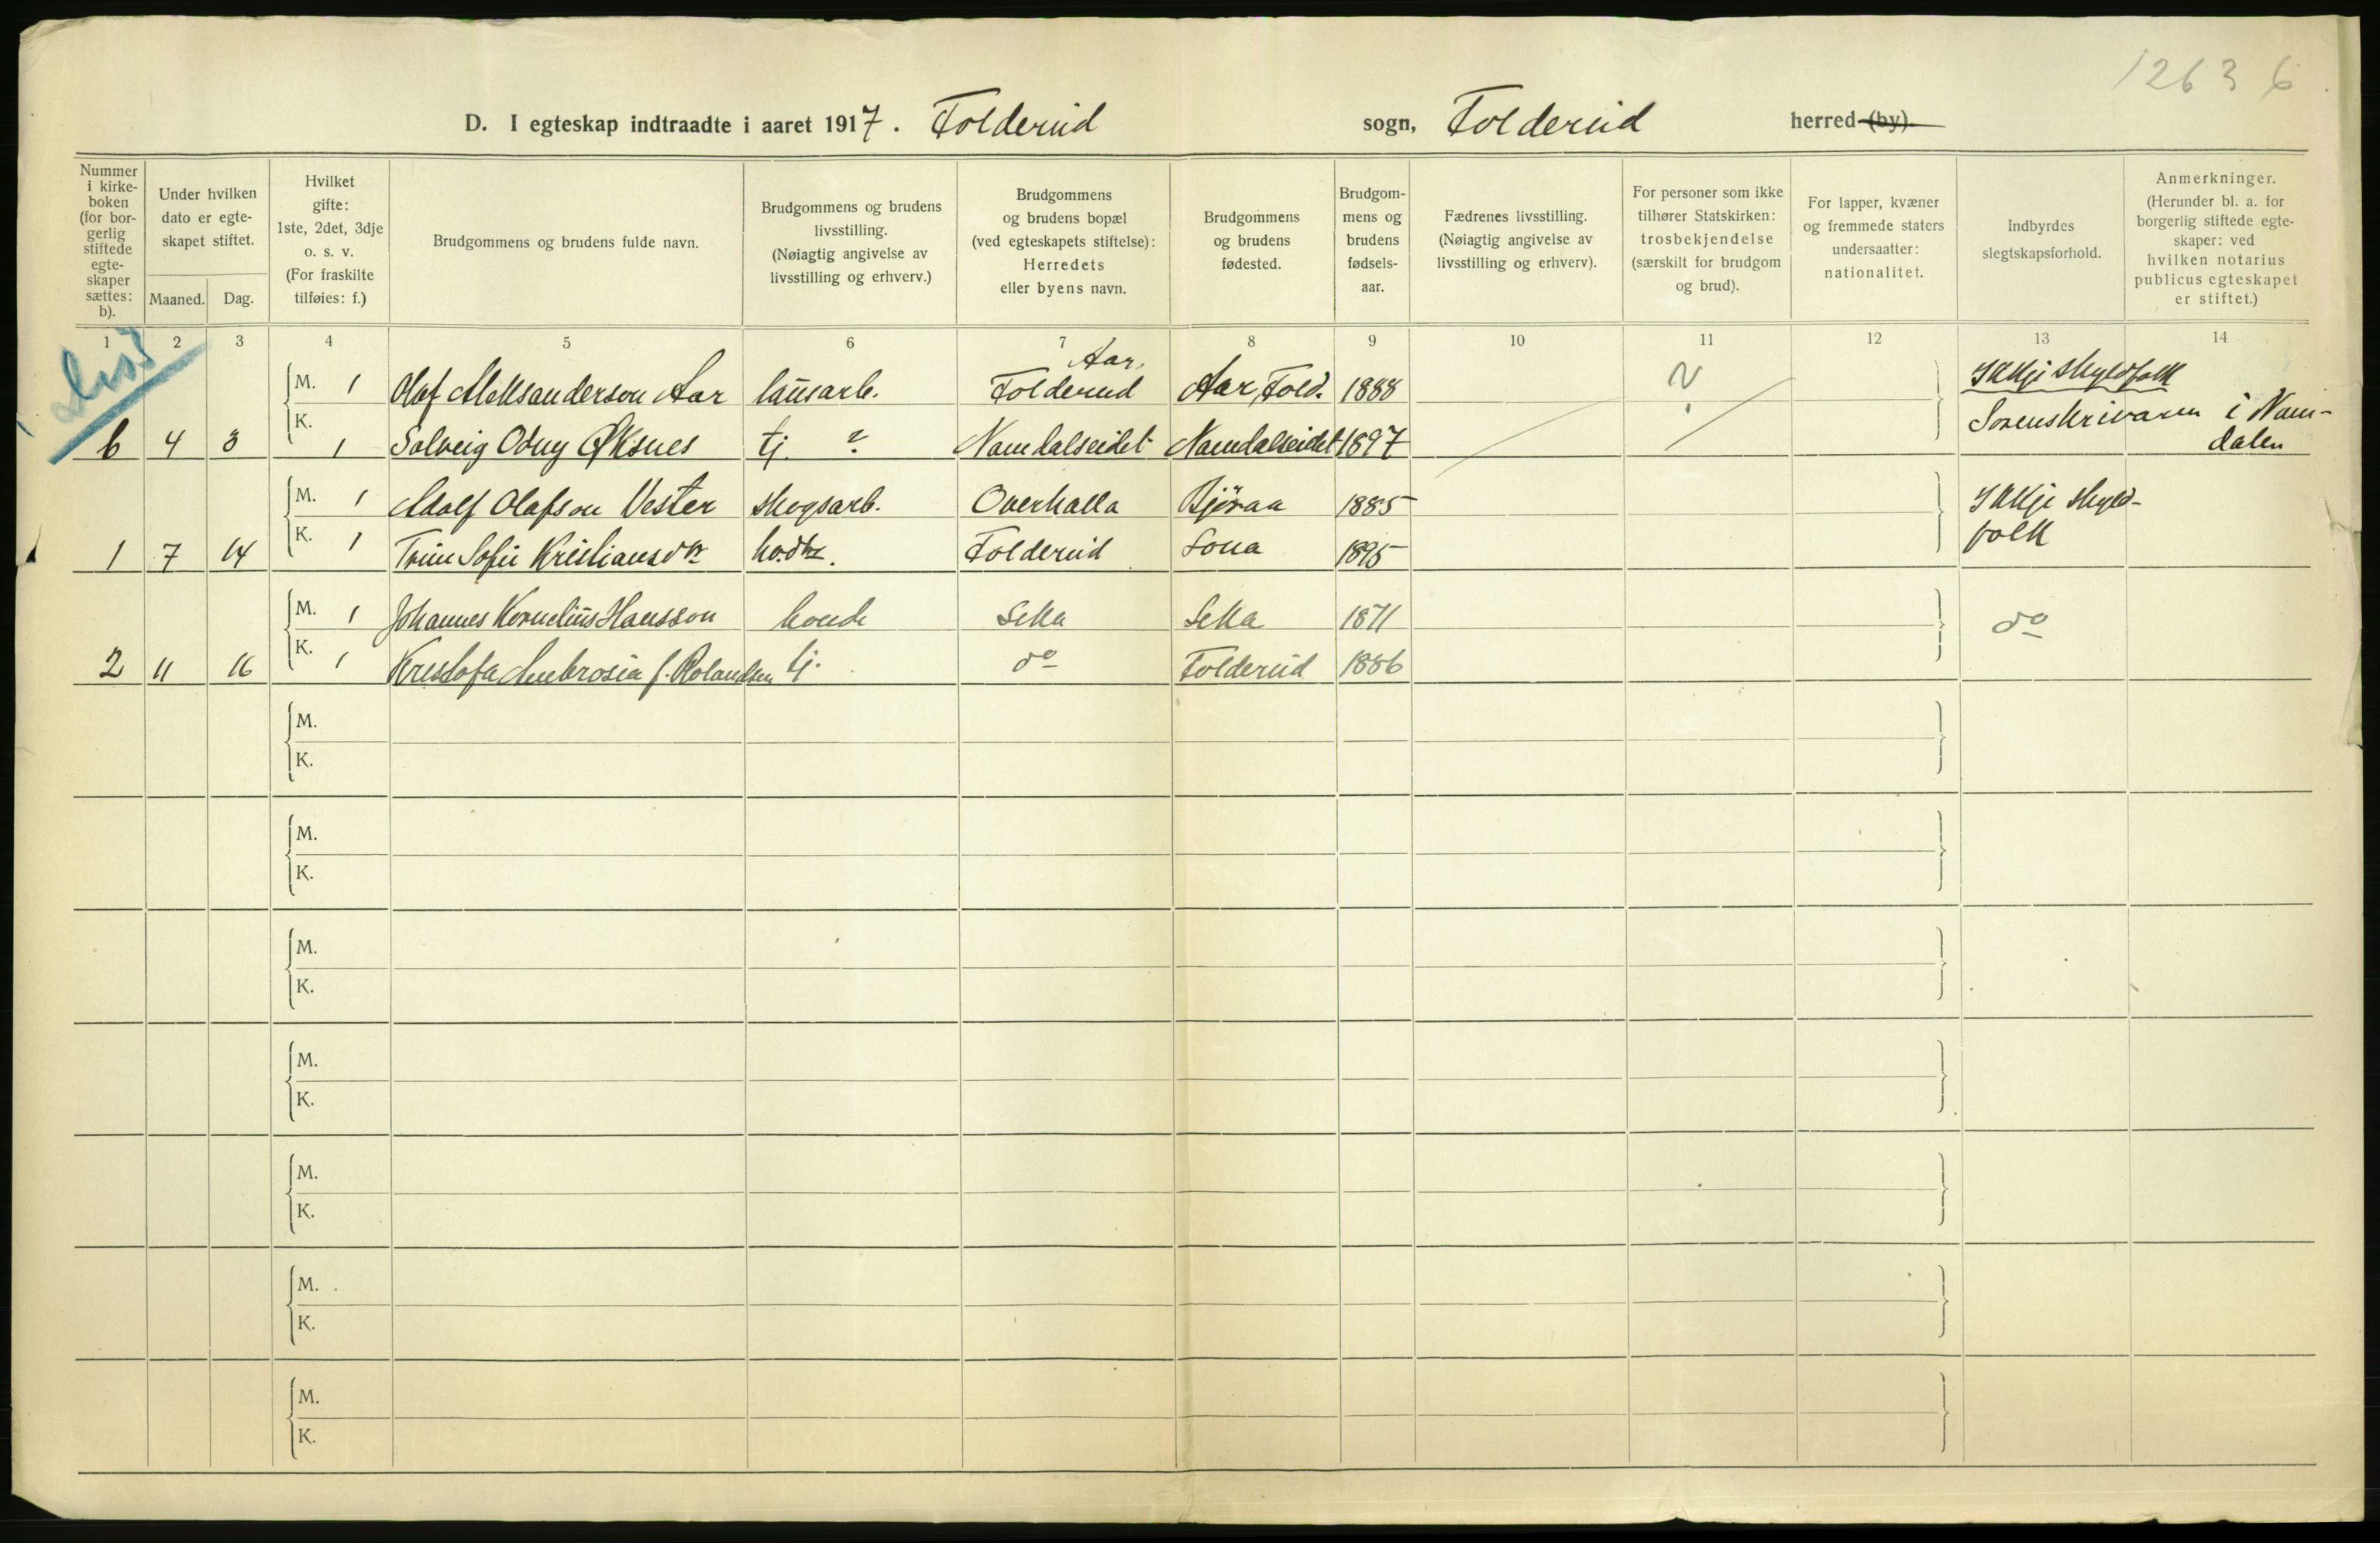 12636
D. I egteskap indtraadte i aaret 1917. Foldereid sogn, Foldereid herred (by).
Nummer i kirke-boken (for bor-gerlig stiftede egte-skaper sættes: b).
Under hvilken dato er egte-skapet stiftet.
Maaned. Dag.
Hvilket gifte: 1ste, 2det, 3dje o. s. v. (For fraskilte tilføies: f.)
Brudgommens og brudens fulde navn.
Brudgommens og brudens livsstilling. (Nøiagtig angivelse av livsstilling og erhverv.)
Brudgommens og brudens bopæl (ved egteskapets stiftelse): Herredets eller byens navn.
Brudgommens og brudens fødested.
Brudgom-mens og brudens fødsels-aar.
Fædrenes livsstilling. (Nøiagtig angivelse av livsstilling og erhverv).
For personer som ikke tilhører Statskirken: trosbekjendelse (særskilt for brudgom og brud).
For lapper, kvæner og fremmede staters undersaatter: nationalitet.
Indbyrdes slegtskapsforhold.
Anmerkninger. (Herunder bl. a. for borgerlig stiftede egte-skaper: ved hvilken notarius publicus egteskapet er stiftet.)
1 2 3 4 5 6 7 8 9 10 11 12 13 14
Aar,
M. 1 Olaf Aleksanderson Aar lausarb. Foldereid Aar, Fold. 1888 ? Ikkje skyldfolk
b 4 3 K. 1 Solveig Odny Øksnes tj. ? Namdalseidet Namdalseidet 1897 Sorenskrivaren i Nam-
dalen
M. 1 Adolf Olafson Vester skogsarb. Overhalla Bjøraa 1885 Ikkje skyld-
1 7 14 K. 1 Trine Sofie Kristiansdtr Foldereid 1895 folk
M. 1 Johannes Kornelius Hansson bonde Leka Leka 1871 do
2 11 16 K. 1 Kristofa Ambrosia f. Rolandsen tj. do Foldereid 1886
M.
K.
M.
K.
M.
K.
M.
K.
M.
K.
M.
K.
M.
K.